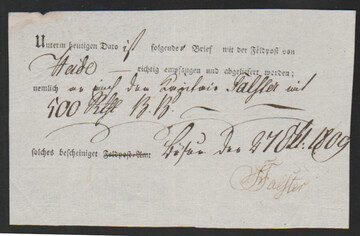 Unterm heutigen Dato ist folgendes Brief mit der Feldpost von
Heide richtig empfangen und abgeliefert worden;
nemlich an den Capitain Falster mit
500 B. B.
solches bescheiniget Feldpost-Amt den 27 1809
Falster